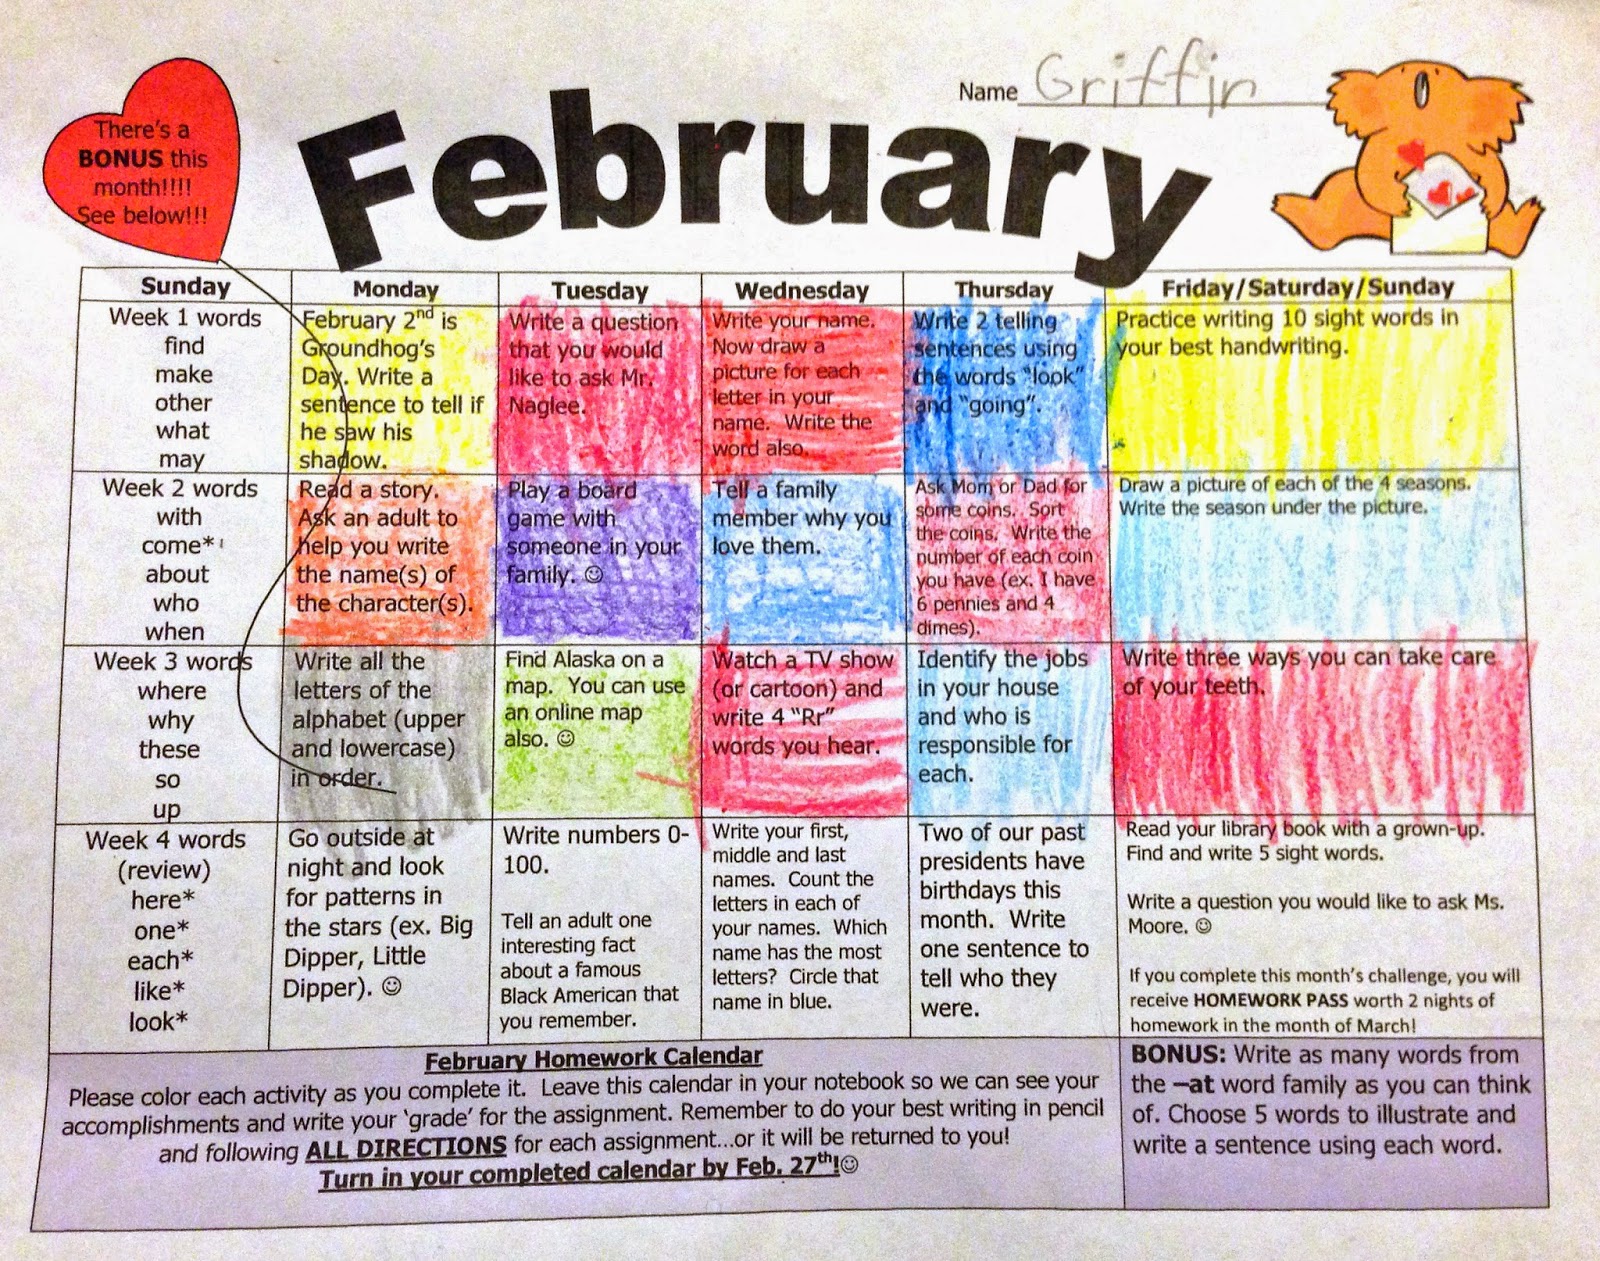 There's a
BONUS this
month!!!!
See below!!!
Name Griffin
February
Sunday
Monday
Tuesday
Wednesday
Thursday
Friday/Saturday/Sunday
Week 1 words
find
make
other
what
may
February 2nd is
Groundhog's
Day. Write a
sentence to tell if
he saw his
shadow.
Write a question
that you would
like to ask Mr.
Naglee.
Write your name.
Now draw a
picture for each
letter in your
name. Write the
word also.
Write 2 telling
sentences using
the words "look"
and "going".
Practice writing 10 sight words in
your best handwriting.
Week 2 words
with
come*
about
who
when
Read a story.
Ask an adult to
help you write
the name(s) of
the character(s).
Play a board
game with
someone in your
family. ☺
Tell a family
member why you
love them.
Ask Mom or Dad for
some coins. Sort
the coins. Write the
number of each coin
you have (ex. I have
6 pennies and 4
dimes).
Draw a picture of each of the 4 seasons.
Write the season under the picture.
Week 3 words
where
why
these
so
up
Write all the
letters of the
alphabet (upper
and lowercase)
in order.
Find Alaska on a
map. You can use
an online map
also. ☺
Watch a TV show
(or cartoon) and
write 4 "Rr"
words you hear.
Identify the jobs
in your house
and who is
responsible for
each.
Write three ways you can take care
of your teeth.
Week 4 words
(review)
here*
one*
each*
like*
look*
Go outside at
night and look
for patterns in
the stars (ex. Big
Dipper, Little
Dipper). ☺
Write numbers 0-
100.
Tell an adult one
interesting fact
about a famous
Black American that
you remember.
Write your first,
middle and last
names. Count the
letters in each of
your names. Which
name has the most
letters? Circle that
name in blue.
Two of our past
presidents have
birthdays this
month. Write
one sentence to
tell who they
were.
Read your library book with a grown-up.
Find and write 5 sight words.
Write a question you would like to ask Ms.
Moore. ☺
If you complete this month's challenge, you will
receive HOMEWORK PASS worth 2 nights of
homework in the month of March!
February Homework Calendar
Please color each activity as you complete it. Leave this calendar in your notebook so we can see your
accomplishments and write your 'grade' for the assignment. Remember to do your best writing in pencil
and following ALL DIRECTIONS for each assignment...or it will be returned to you!
Turn in your completed calendar by Feb. 27th!☺
BONUS: Write as many words from
the –at word family as you can think
of. Choose 5 words to illustrate and
write a sentence using each word.